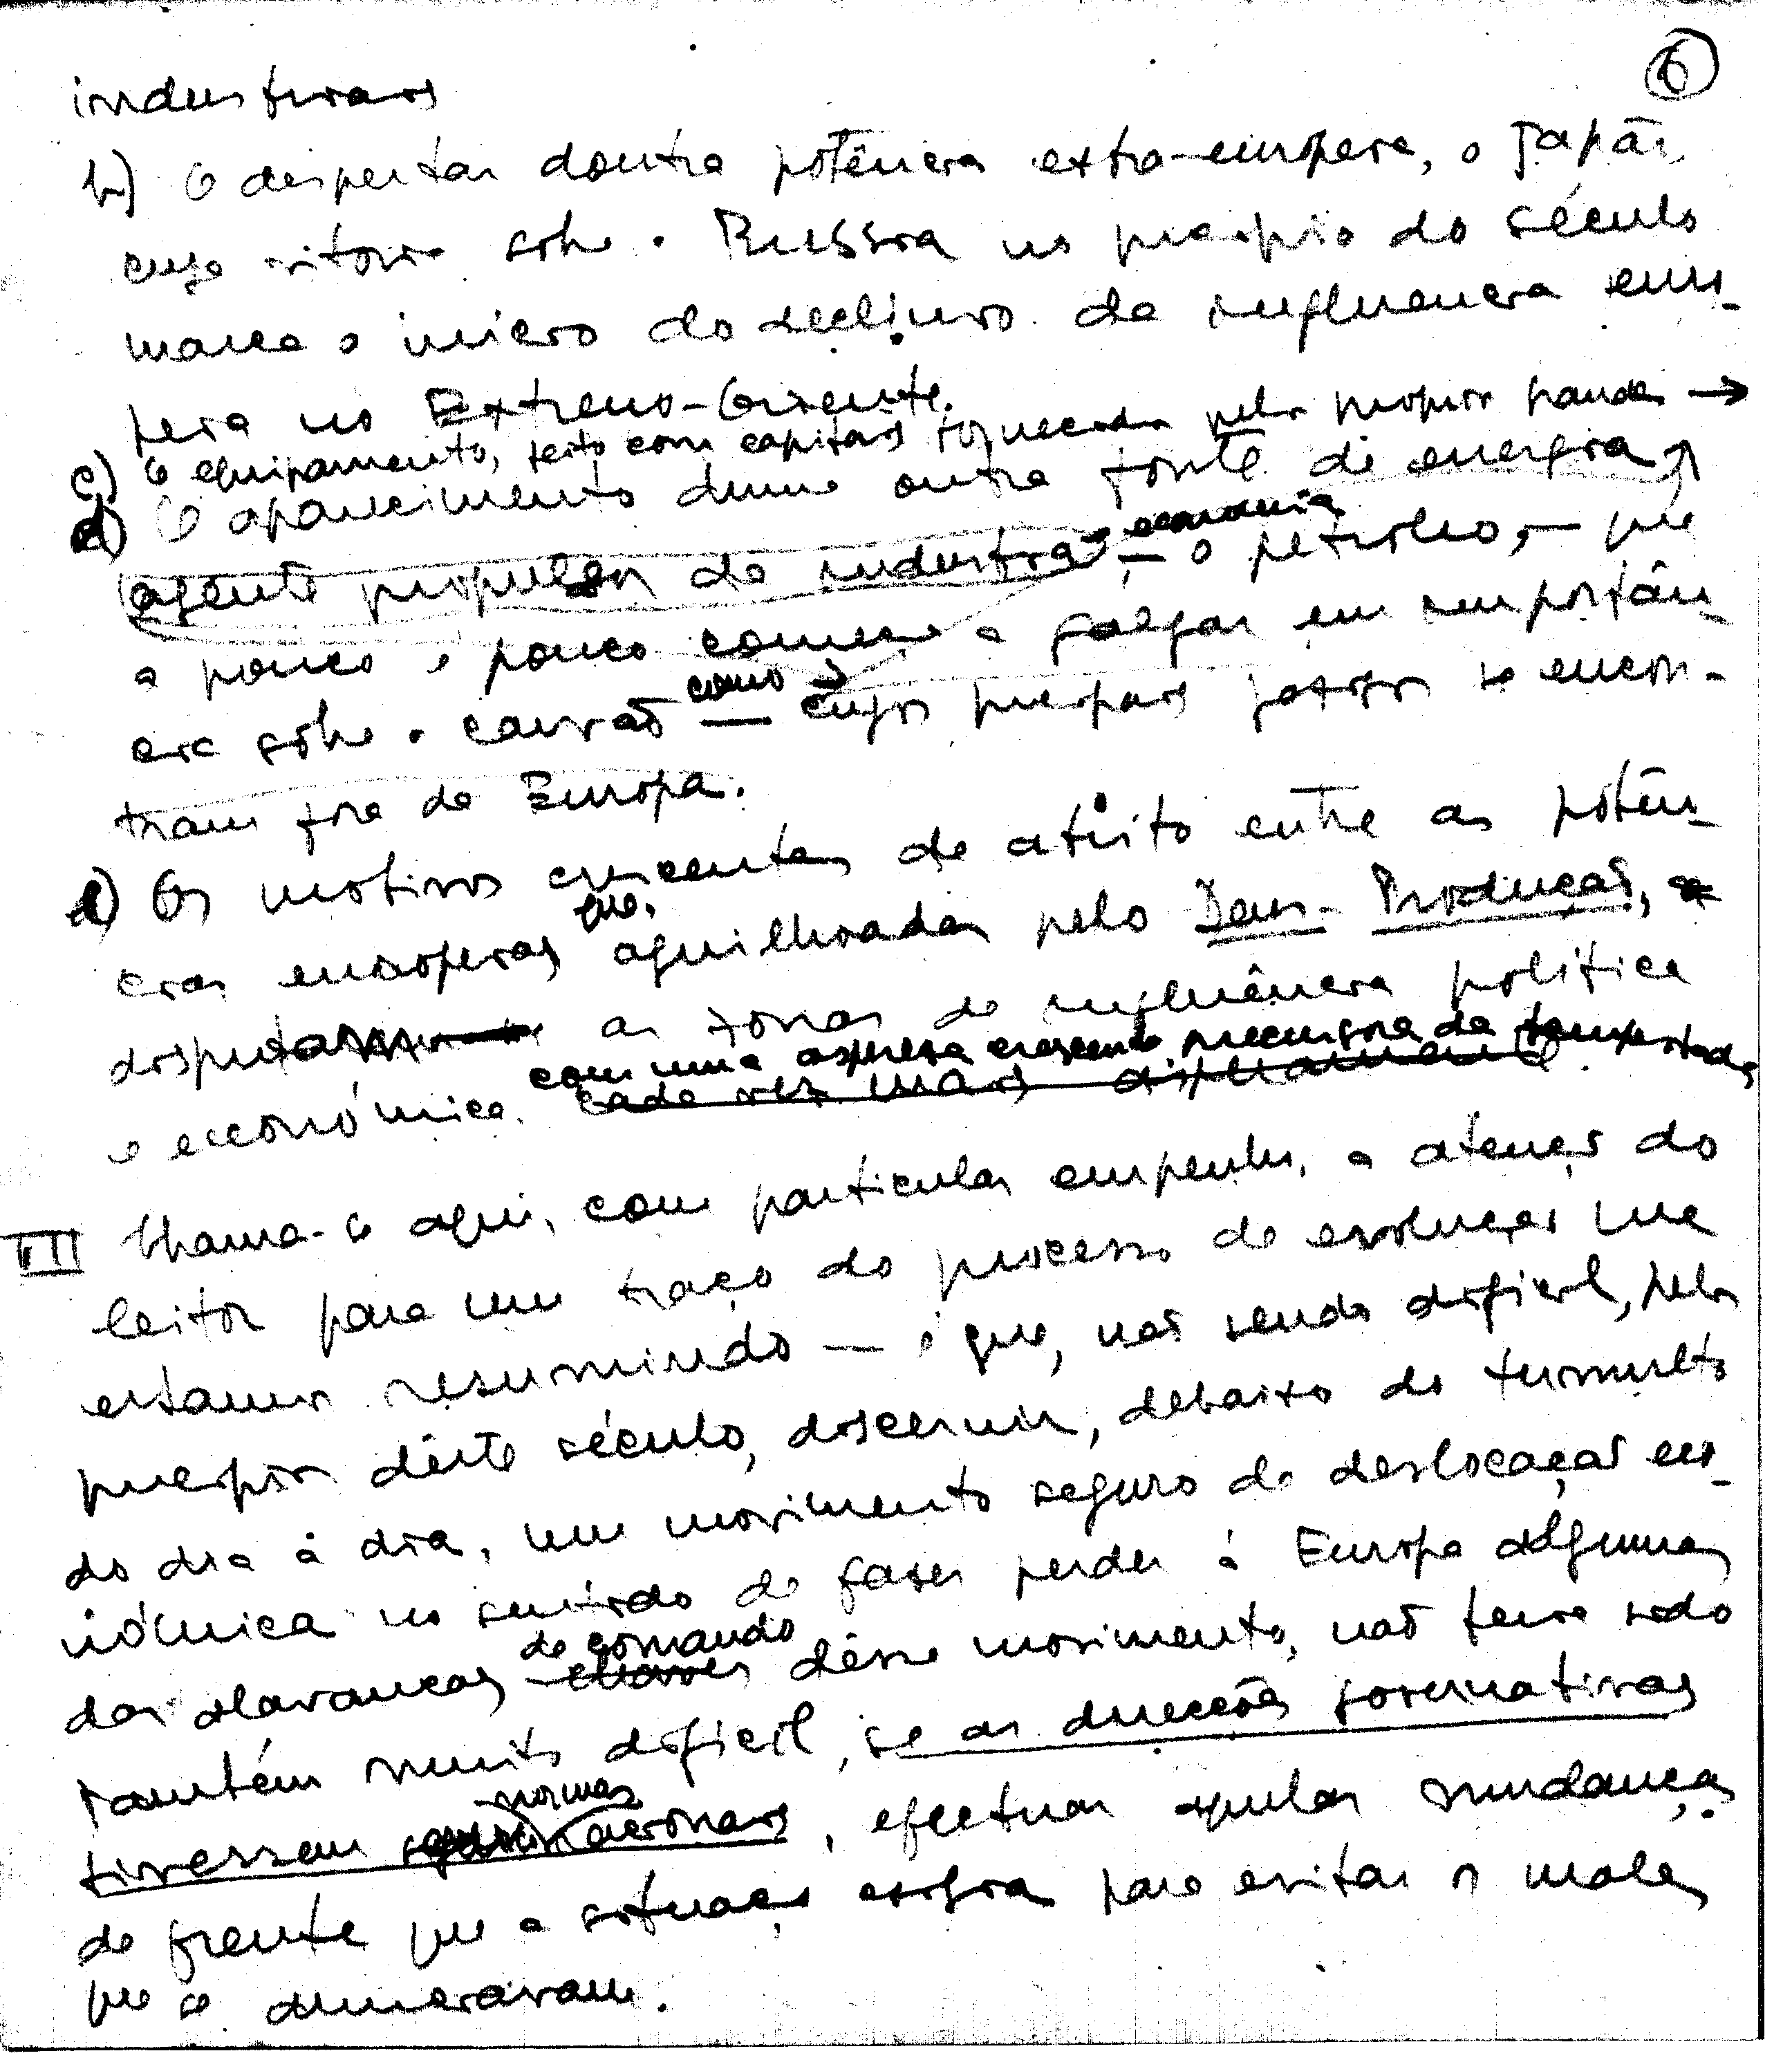 6
industriais
b) O despertar doutra potência extra-europeia, o Japão,
cuja vitória sobre a Russia no princípio do século
marca o início do declínio da influência euro-
peia no Extremo-Oriente.
c) O equipamento, feito com capitais fornecidos pelos próprios grandes →
d) O aparecimento duma outra fonte de energia,
agente propulsor da industria e economia, — o petróleo, — que
a pouco e pouco começa a galgar em importân-
cia sobre o carvão — como cujos principais jazigos se encon-
tram fora da Europa.
e) Os motivos crescentes de atrito entre as potên-
cias europeias que, aguilhoadas pelo Deus-Produção,
disputam as zonas de influência política
e económica com uma aspereza crescente, precursora da tempestade.
cada vez mais asperamente.
VII Chama-se aqui, com particular empenho, a atenção do
leitor para um traço do processo de evolução que
estamos resumindo — é que, não sendo difícil, pelos
princípios dêste século, discernir, debaixo do tumulto
do dia à dia, um movimento seguro de deslocação eco-
nómica no sentido de fazer perder à Europa algumas
das alavancas de comando dêsse movimento, não teria sido
também muito difícil, se as direcções governativas
tivessem normas racionais, efectuar aquelas mudanças
de frente que a situação exigia para evitar os males
que se anunciavam.